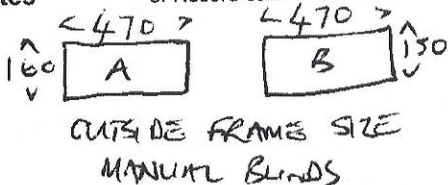 470 470
160 A B 150
OUTSIDE FRAME SIZE
MANUAL BLINDS